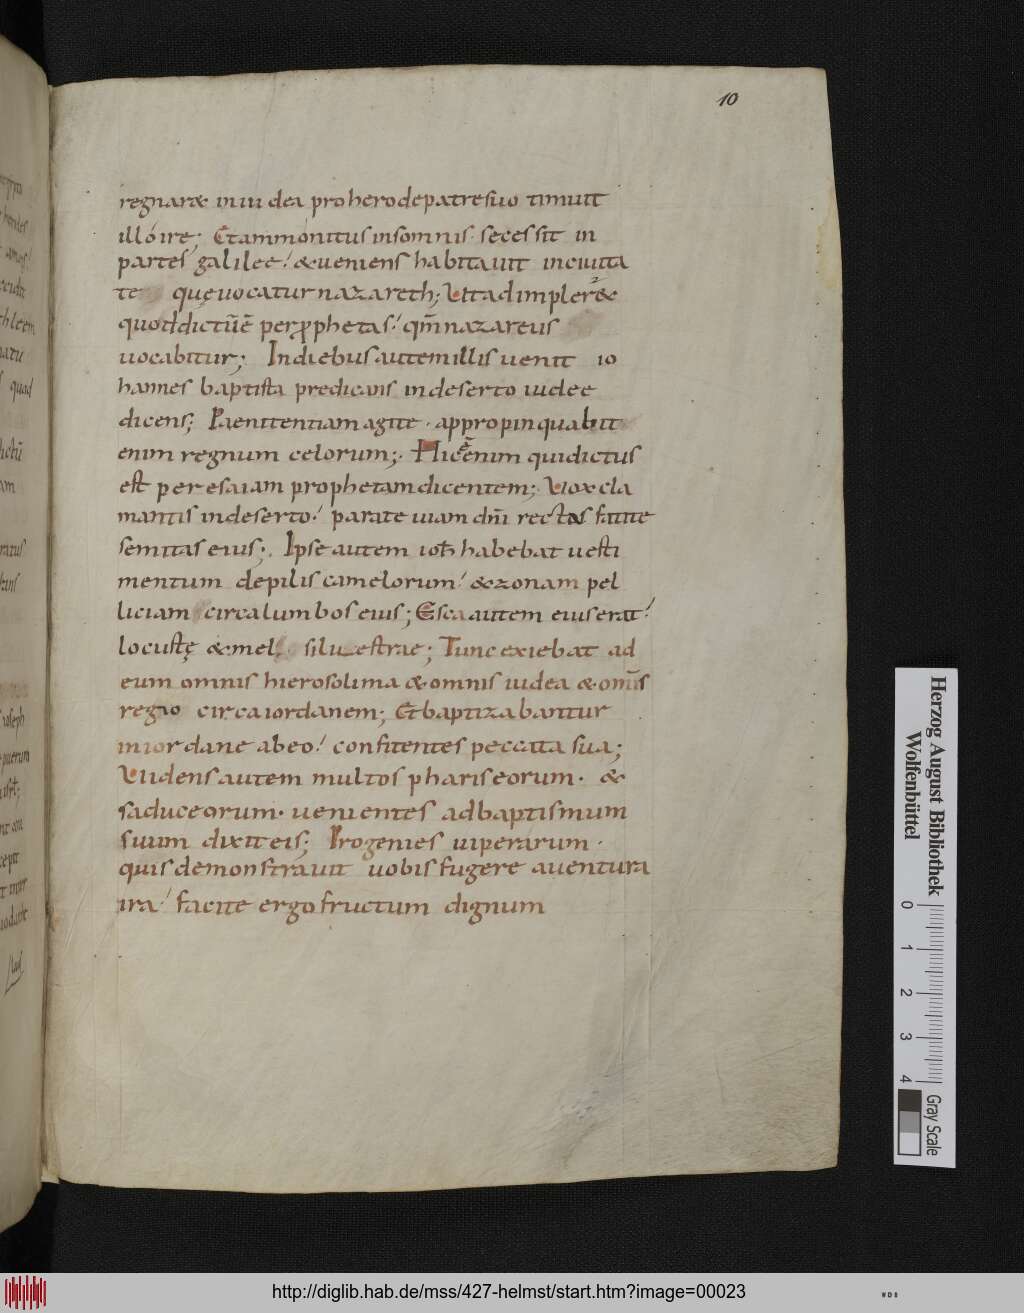 10
regnaret in iudea pro herode patre suo timuit
illó ire; Et ammonitus in somnis · secessit in
partes galileę! & ueniens habitauit in ciuita
te quę uocatur nazareth; Ut adimpler&
quod dictū ē per ꝓphetas! qm̄ nazareus
uocabitur; In diebus autem illis uenit io
hannes baptista predicans in deserto iudee
dicens; Paenitentiam agite · appropinquabit
enim regnum celorum; Hic ē enim qui dictus
est per esaiam prophetam dicentem; Uox cla
mantis in deserto! parate uiam dn̄i rectas facite
semitas eius; Ipse autem ioh̄ habebat uesti
mentum de pilis camelorum! & zonam pel
liciam circa lumbos eius; Esca autem eius erat!
locustę & mel siluestrae; Tunc exiebat ad
eum omnis hierosolima & omnis iudea & om̄is
regio circa iordanem; Et baptizabantur
in iordane ab eo! confitentes peccata sua;
Uidens autem multos phariseorum · &
saduceorum · uenientes ad baptismum
suum dixit eis; Progenies uiperarum ·
quis demonstrauit uobis fugere a uentura
ira! facite ergo fructum dignum
Herzog August Bibliothek
Wolfenbüttel
0 1 2 3 4
Gray Scale
http://diglib.hab.de/mss/427-helmst/start.htm?image=00023